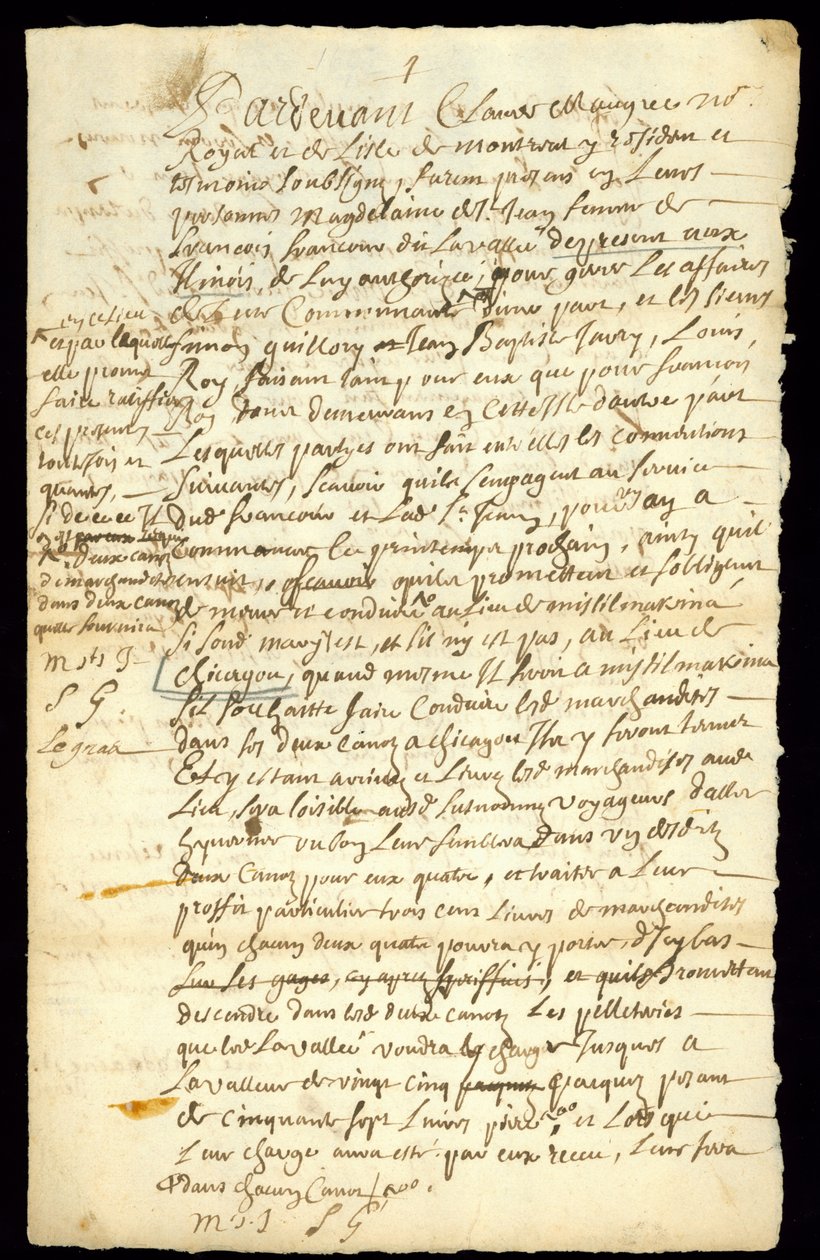 1
Pardevant Claude Maugue no.re
Royal et de Lisle de montreal y residant et
tesmoins soubsignez, furent presens en Leurs
personnes Magdelaine de St. Jean femme de
francois francoeur dit Lavallée de present aux
Ilinois, de Luy authorizée, pour gerer Les affaires
de Leur Communauté d'une part, et les sieurs
simon guillory et Jean Baptiste Jarry, Louis
Roy, faisant tant pour eux que pour francois
Roy demeurans en cette Isle d'autre part
Lesquelles partyes ont fait entr'elles les conventions
suivantes, scavoir qu'ils s'engagent au service
dud. francoeur et Lad. St. Jean, pour
Commancer Le printemps prochain, ainsy quil
ensuit, scavoir quils promettent et s'obligent
de mener et conduire au Lieu de missilmakina
si sond. mary y est, et s'il n'y est pas, au Lieu de
chicagou, quand mesme Il seroit a missilmakina
s'il souhaitte faire Conduire lesd. marchandises
dans ses deux canotz a chicagou Ilz y seront tenus
Et y estant arrivez et Livrez lesd. marchandises aud.
Lieu, sera loisible ausd. susnommez voyageurs d'aller
hyverner ou bon Leur semblera dans un desd.
deux Canotz pour eux quatre, et traiter a Leur
proffit particulier trois cens Livres de marchandises
qu'un chacun d'eux quatre pourra y porter, d'Icy bas
sur Les gages, cy apres speciffiez, et quils Promettent
descendre dans lesd. deux canotz Les pelleteries
que led. Lavallée voudra charger Jusques a
La valleur de vingt cinq pacquez pesant
de cinquante sept Livres piece et Lors que
Leur charge aura esté par eux receue, Leur sera
dans chacun Canot
M S J S G
en ce Lieu
et par lequel
elle promet
faire ratiffier
ces presentes
touttefois et
quantes,
deux canotz
de marchandises
dans deux canotz
quelle fournira
M St J
S G
Legras